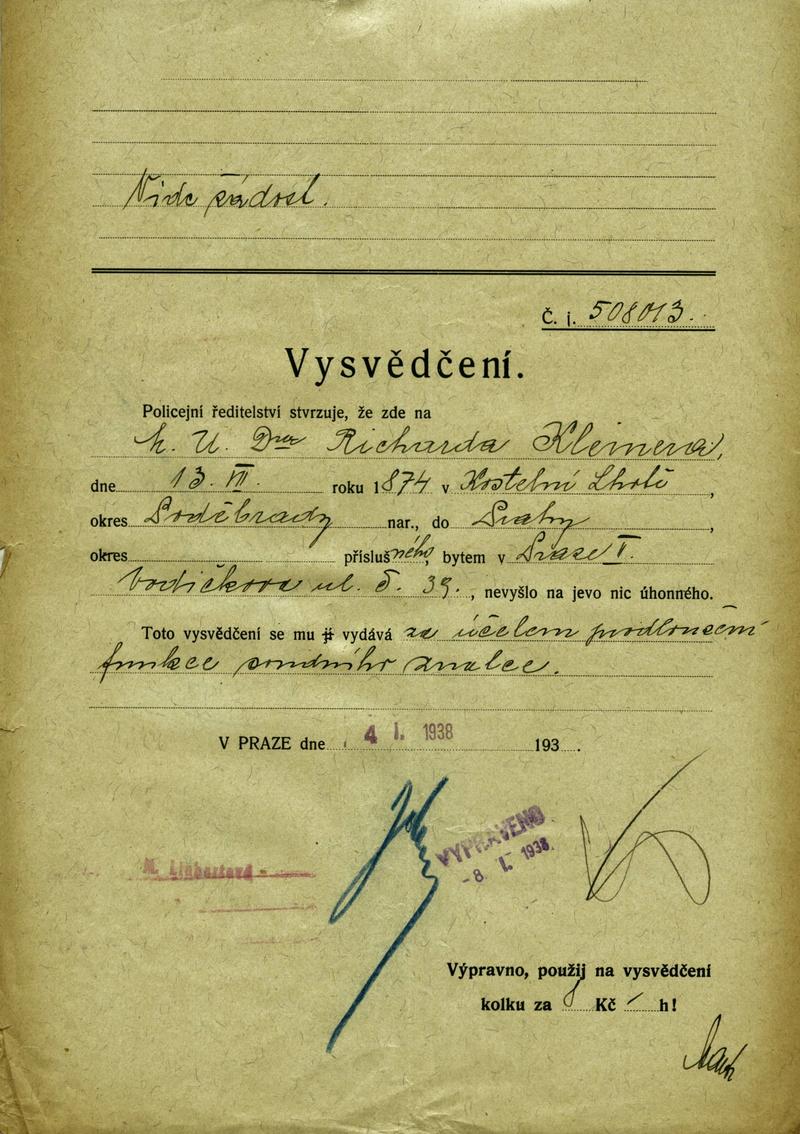 Vide žádost.
Č. j. 508013.
Vysvědčení.
Policejní ředitelství stvrzuje, že zde na
p. U. Dra Richarda Kleinera,
dne 13. III. roku 1874 v Kostelní Lhotě,
okres Poděbrady nar., do Prahy,
okres příslušného, bytem v Praze II.
Vodičkova ul. č. 39., nevyšlo na jevo nic úhonného.
Toto vysvědčení se mu ji vydává za účelem prodloužení
funkce soudního znalce.
V PRAZE dne 4 I. 1938 193 .
VYPRAVENO
-8. I. 1938
Výpravno, použij na vysvědčení
kolku za 8 Kč – h!